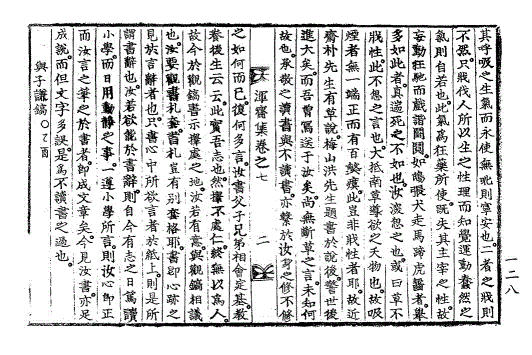 其呼吸之生氣而永使無虵則寧安也一者之戕則
不啻只戕伐人所以生之性理而知覺運動蠢然之
氣則自若也此氣爲狂藥所使旣失其主宰之性故
妄動狂馳而戱謔鬪鬨如鴟張犬走馬蹄虎醫者擧
多如此者眞遄死之不如也汝深恕之也或曰草不
戕性此不怠之言也大抵南草導欲之夭物也故吸
煙者無一端正而有百鰲㾗此豈非戕性者耶故近
齋朴先生有草說梅山洪先生題書於說後警世後
進大矣而吾曾寫送于汝矣尚無斷草之言未知何
故也承敎之讀書與不讀書亦繫於汝身之修不修
渾齋集卷之七
二
之如何而已復何多言汝書父子兄弟相會定基敎
養後生云云此實吾志也然擇不處仁終無以爲人
故今於觀鎬書示擇處之地汝若有意與觀鎬相議
也汝要觀書札套書札豈有别套格耶書卽心跡之
見於言辭者也只書心中所欲言者於紙上則是所
謂書辭也汝若欲能於書辭則自今有志之日篤讀
小學而日用動靜之事一遵小學所言則汝心卽正
而汝言之筆之於書者卽成文章矣今見汝書亦足
成說而但文字多誤是爲不讀書之過也
與子謙鎬○乙酉
一二八